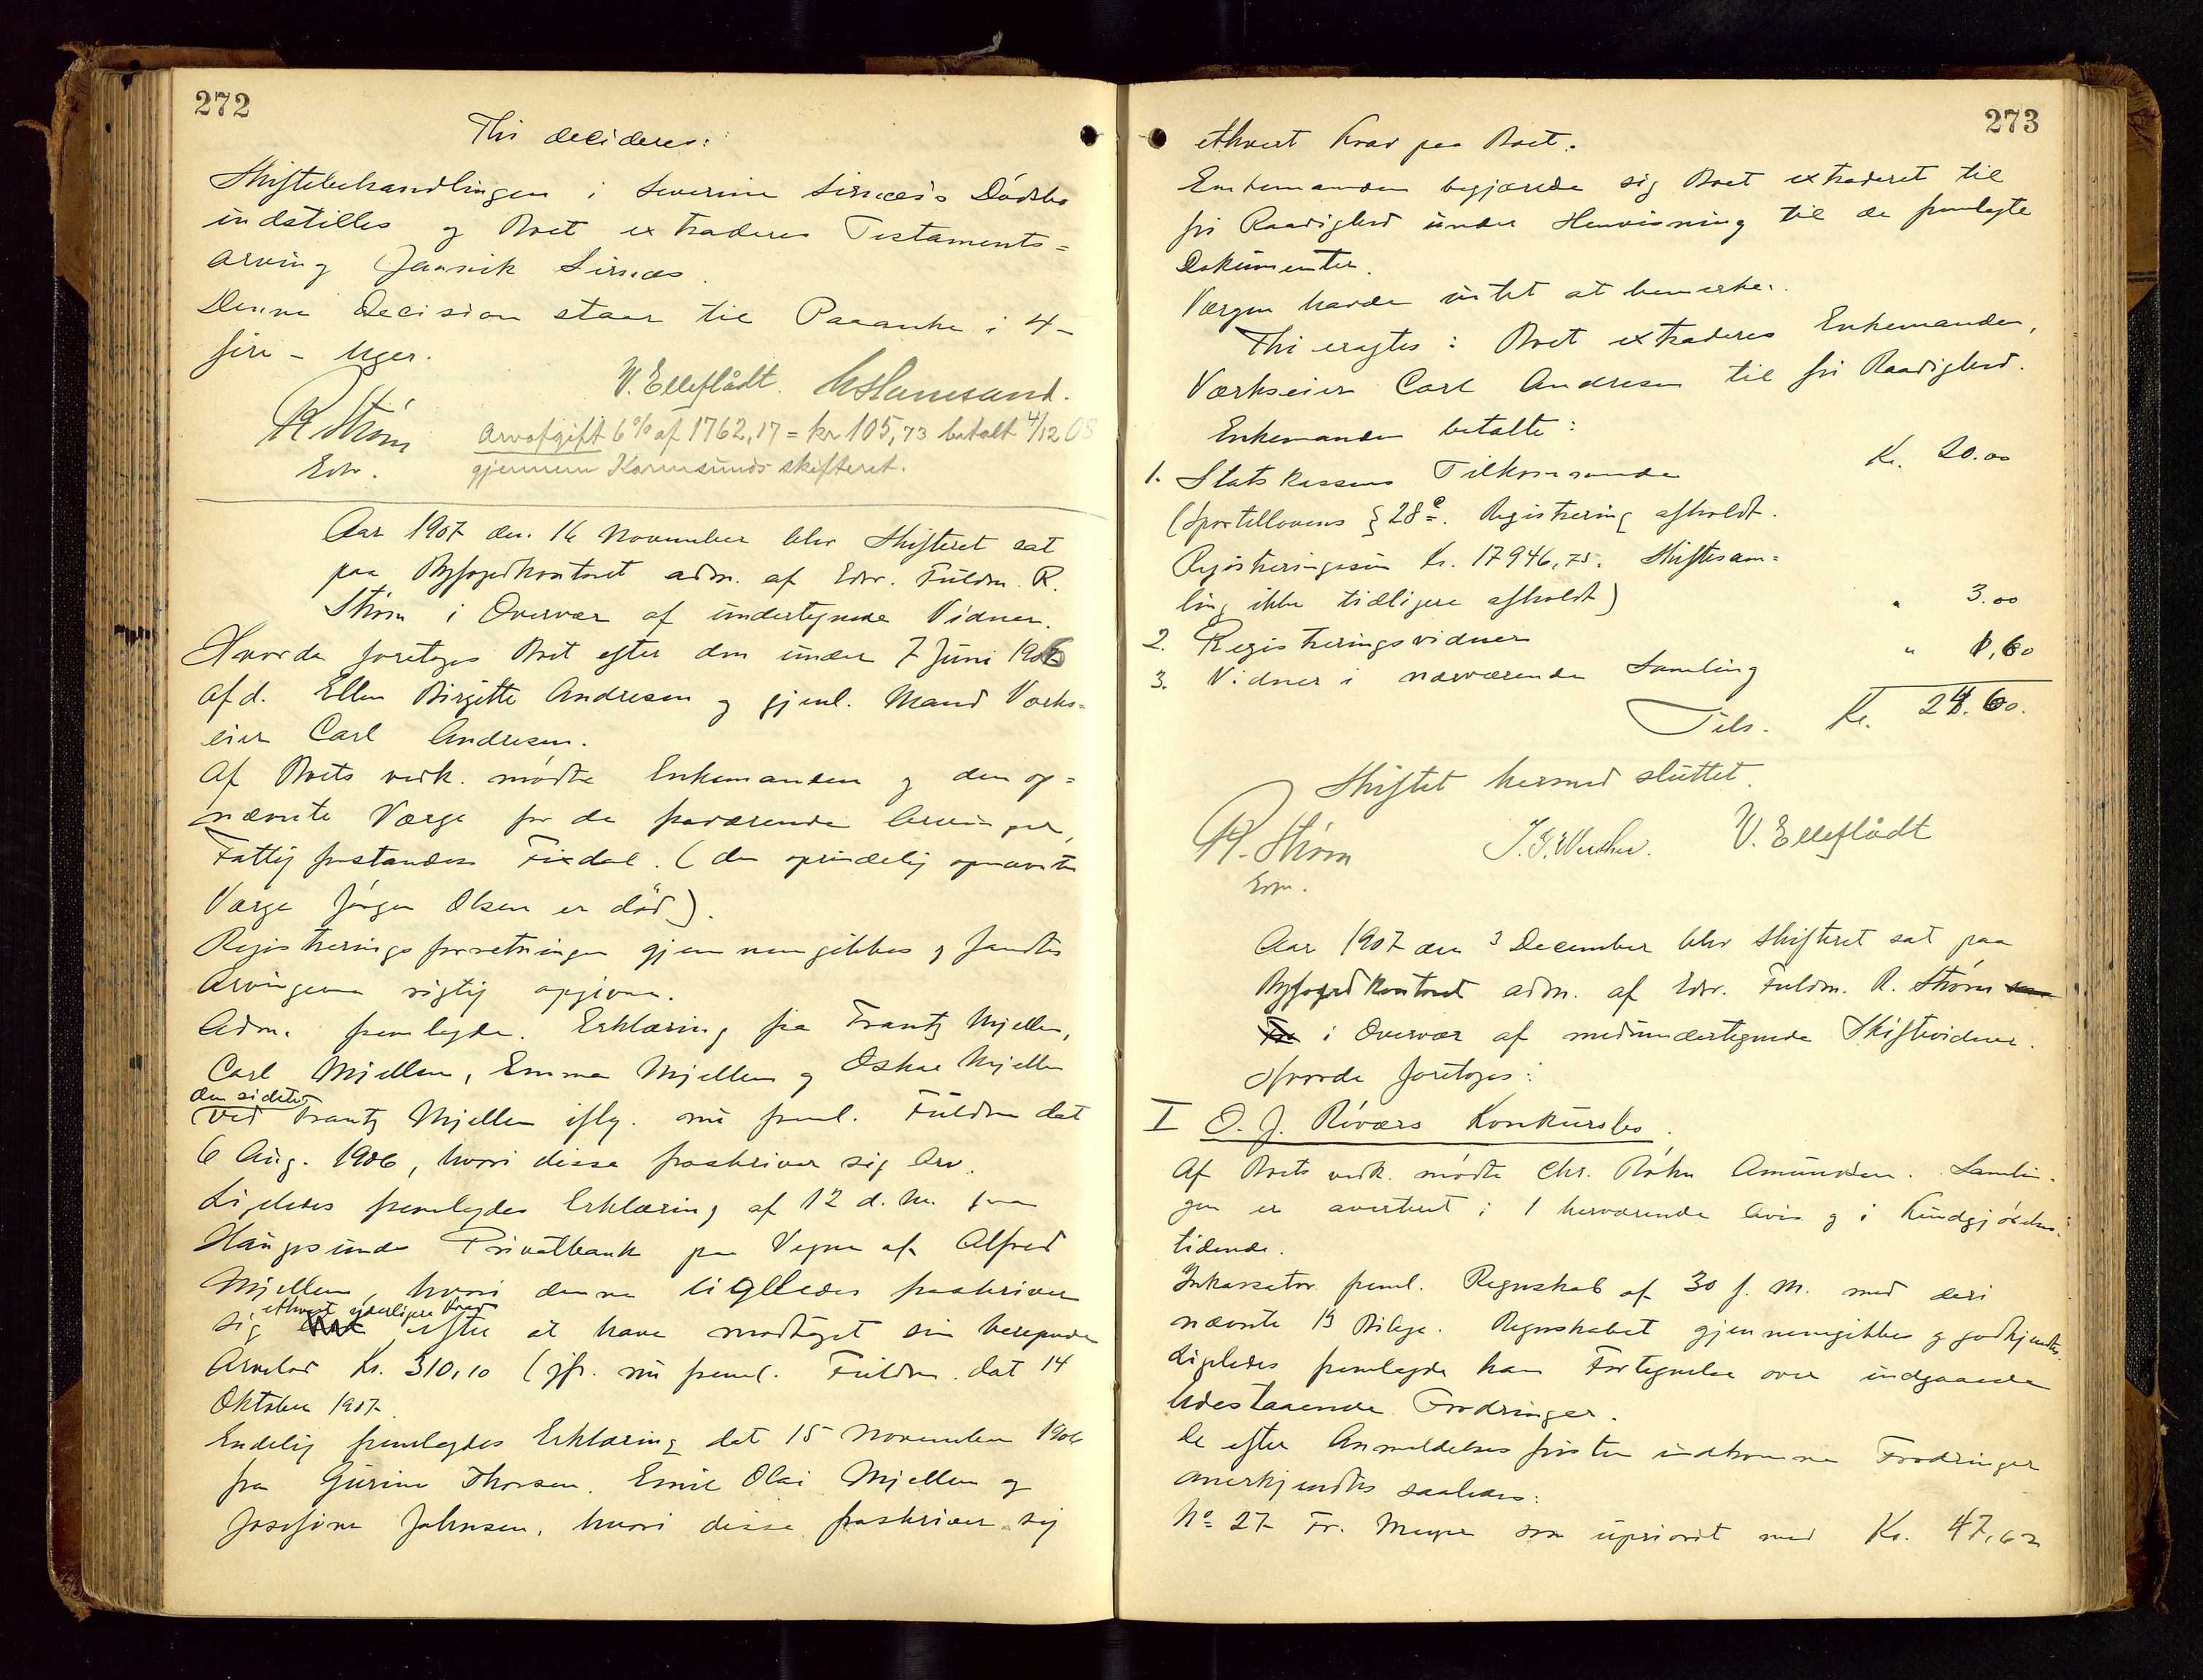 272
Thi decideres:
Skiftebehandlingen i Severine Sirnæs's Dödsbo
indstilles og Boet extraderes Testaments=
arving Jannik Sirnæs.
Denne Decision staar til Paaanke i 4-
fire - Uger.
V. Elleflådt.
R Strøm
Edv.
Arvafgift 6% af 1762,17 = kr 105,73 betalt 4/12 08
gjennem Karmsunds skifteret.
Aar 1907 den 16 November blev Skifteret sat
paa Byfogedkontoret adm. af Edv. Fuldm. R.
Strøm i Overvær af undertegnede Vidner.
Hvorda foretoges Boet efter den under 7 Juni 1906
afd. Ellen Birgitte Andresen og gjenl. Mand Værks-
eier Carl Andresen.
Af Boets vedk. mødte Enkemanden og den op=
nævnte Værge for de fraværende Arvinger,
Fattigforstander Fixdal. (den oprindelig opnævnte
Værge Jørgen Olsen er död).
Registreringsforretningen gjennemgikkes og fandtes
Arvingerne rigtig opgivne.
Adm. fremlagde Erklæring fra Frantz Mjellem,
Carl Mjellem, Emma Mjellem og Oskar Mjellem
den sidste
ved Frantz Mjellem iflg. nu freml. Fuldm dat
6 Aug. 1906, hvori disse fraskriver sig Arv.
Ligeledes fremlagdes Erklæring af 12 d. M. fra
Haugesunds Privatbank paa Vegne af Alfred
Mjellem, hvori denne ligeledes fraskriver
ethvert yderligere Krav
sig efter at have modtaget sin beregnede
Arvelod Kr. 310,10 (jfr. nu freml. Fuldm. dat 14
Oktober 1907.
Endelig fremlagdes Erklæring dat 15 November 1906
fra Gurine Thorsen, Emil Olai Mjellem og
Josefine Johnsen, hvori disse fraskriver sig
273
ethvert Krav paa Boet.
Enkemanden begjærede sig Boet extraderet til
fri Raadighed under Henvisning til de fremlagte
Dokumenter.
Værgen havde intet at bemærke.
Thi eragtes: Boet extraderes Enkemanden,
Værkseier Carl Andresen til fri Raadighed.
Enkemanden betalte:
1. Statskassens Tilkommende Kr. 20.00
(Sportellovens § 28 e. Registrering afholdt.
Registreringssum Kr. 17946,75. Skiftesam=
ling ikke tidligere afholdt)
2. Registreringsvidner " 3.00
3. Vidner i nærværende Samling " 1,60
Tils. Kr. 24.60.
Skiftet hermed sluttet.
R. Strøm
Edv.
V. Elleflådt
Aar 1907 den 3 December blev Skifteret sat paa
Byfogedkontoret adm. af Edv. Fuldm. R. Strøm
i Overvær af medundertegnede Skiftevidner.
Hvorda foretoges:
I O. J. Röværs Konkursbo.
Af Boets vedk. mødte Chr. Bøhn Amundsen. Samlin-
gen er averteret i 1 herværende Avis og i Kundgjörelses-
tidende.
Inkassator freml. Regnskab af 30 f. M. med deri
nævnte 13 Bilage. Regnskabet gjennemgikkes og godkjendtes.
Ligeledes fremlagde han Fortegnelse over indgaaede
Udestaaende Fordringer.
De efter Anmeldelsesfristen indkomne Fordringer
anerkjendtes saaledes:
No 27 Fr. Meyer som upriorit med Kr. 47,62